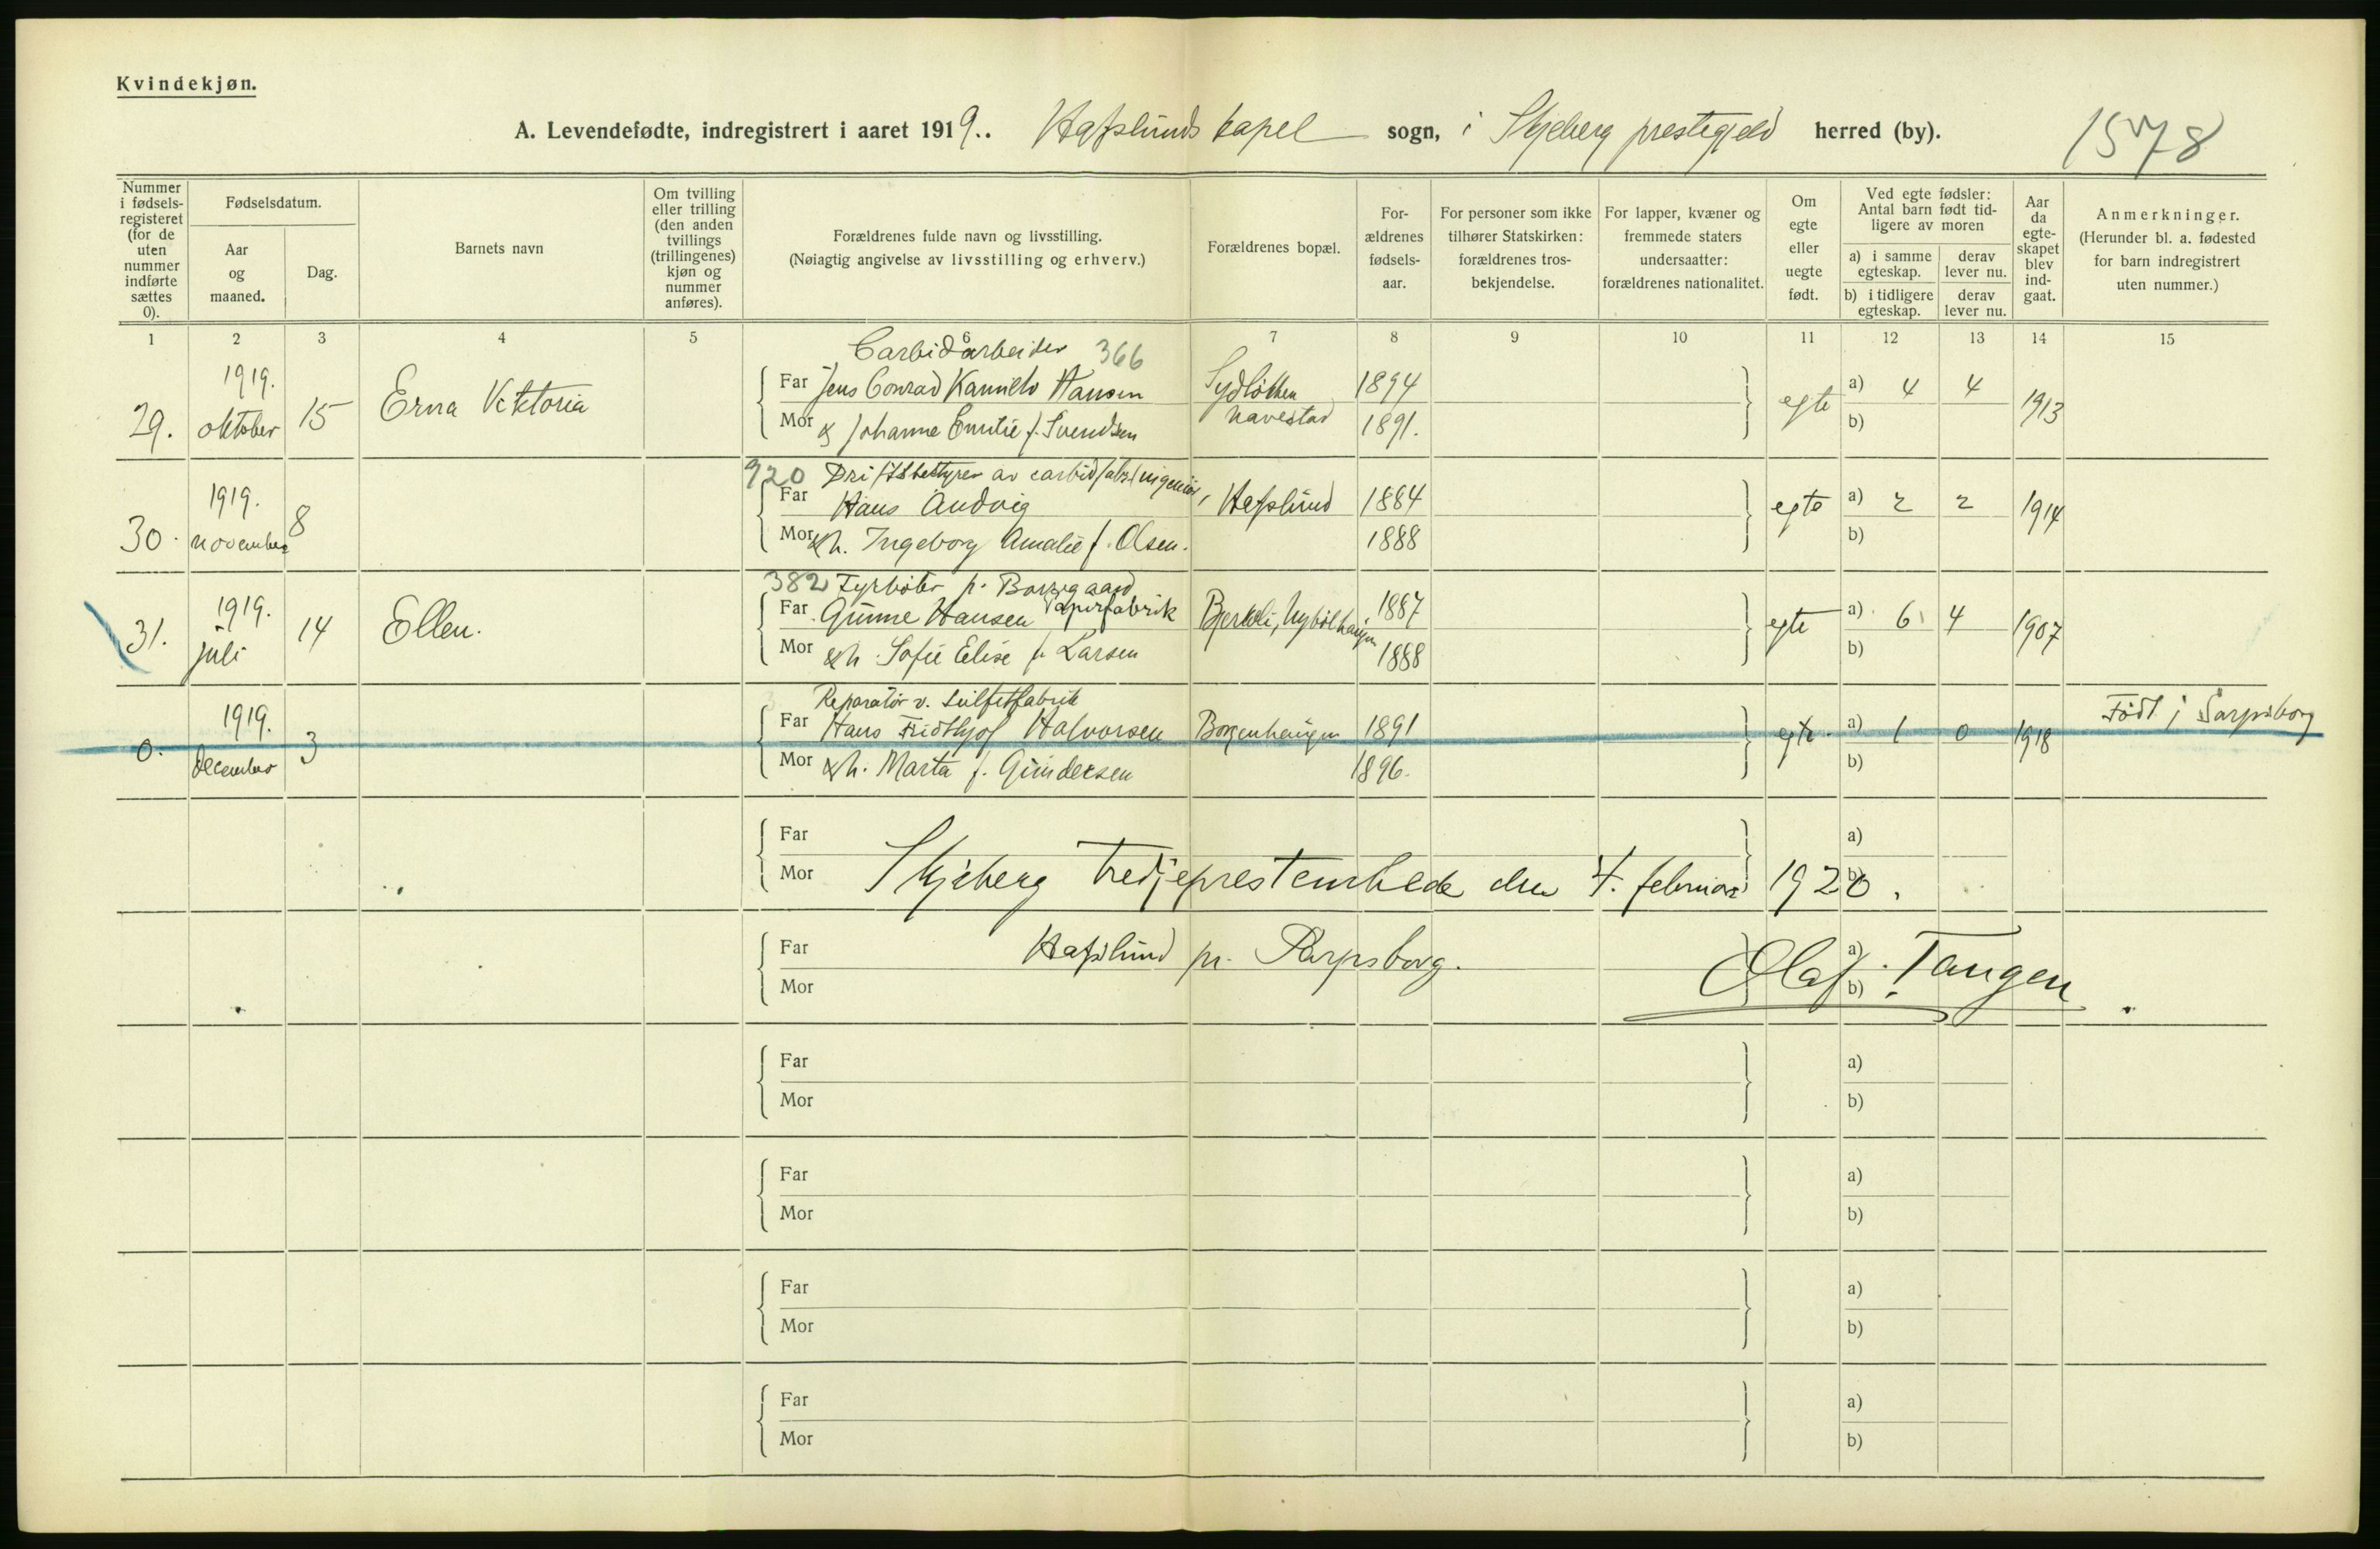 Kvindekjøn.
A. Levendefødte, indregistrert i aaret 1919.. Hafslunds kapel sogn, i Skjeberg prestegjeld herred (by). 1578
Nummer i fødsels-registeret (for de uten nummer indførte sættes 0).
Fødselsdatum.
Aar og maaned.
Dag.
Barnets navn
Om tvilling eller trilling (den anden tvillings (trillingenes) kjøn og nummer anføres).
Forældrenes fulde navn og livsstilling.
(Nøiagtig angivelse av livsstilling og erhverv.)
Forældrenes bopæl.
For-ældrenes fødsels-aar.
For personer som ikke tilhører Statskirken: forældrenes tros-bekjendelse.
For lapper, kvæner og fremmede staters undersaatter: forældrenes nationalitet.
Om egte eller uegte født.
Ved egte fødsler: Antal barn født tid-ligere av moren
a) i samme egteskap.
derav lever nu.
b) i tidligere egteskap.
derav lever nu.
Aar da egte-skapet blev ind-gaat.
Anmerkninger.
(Herunder bl. a. fødested for barn indregistrert uten nummer.)
1 2 3 4 5 6 7 8 9 10 11 12 13 14 15
Carbidarbeider 366
29. 1919. oktober 15 Erna Viktoria
Far Jens Conrad Hansen Navestad 1894 egte a) 4 4 1913
Mor & Johanne Emilie f. Svendsen 1891. b)
920 Driftsbestyrer av carbidfabr. ingeniør,
30. 1919. november 8
Far Hans Andvig Hafslund 1884 egte a) 2 2 1914
Mor & h. Ingeborg Amalie f. Olsen. 1888 b)
382 Fyrbøter p. Borregaard Papirfabrik
31. 1919. juli 14 Ellen.
Far Gunne Hansen Bjerkeli, 1887 egte a) 6 4 1907
Mor & h. Sofie Elise f. Larsen 1888 b)
Reparatør v. Sulfitfabrik
0. 1919. december 3
Far Hans Fridthjof Halvorsen Borgenhaugen 1891 egte. a) 1 0 1918 Født i Sarpsborg
Mor & h. Marta f. Gundersen 1896. b)
Far a)
Mor Skjeberg tredjeprestembede den 4. februar 1920. b)
Far Hafslund pr. Sarpsborg. a)
Mor Olaf Tangen b)
Far a)
Mor b)
Far a)
Mor b)
Far a)
Mor b)
Far a)
Mor b)